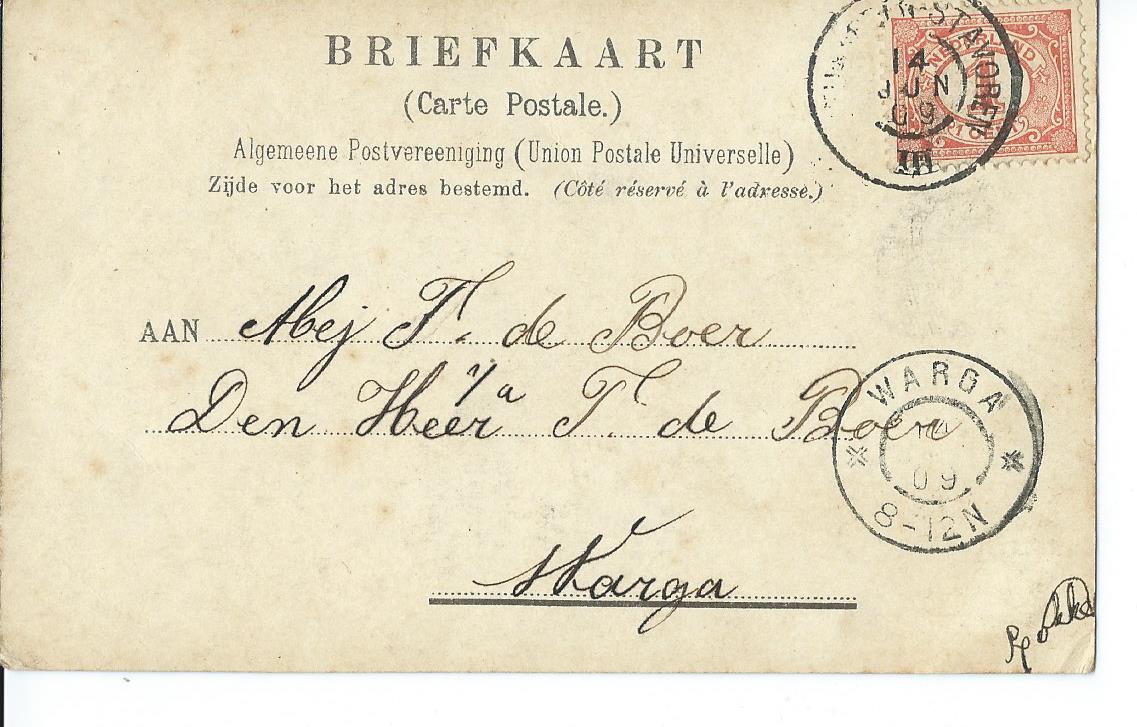 BRIEFKAART
(Carte Postale.)
Algemeene Postvereeniging (Union Postale Universelle)
Zijde voor het adres bestemd. (Côté réservé à l'adresse.)
STAVOREN
14
JUN
09
III
NEDERLAND
1
1 CENT
AAN Mej F. de Boer
1/a
Den Heer F. de Boer
Warga
WARGA
14
09
8-12N